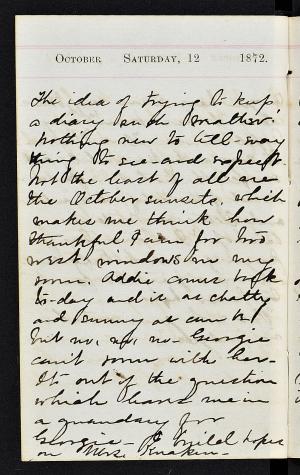 October, Saturday, 12 1872.
The idea of trying to keep
a diary such weather!
Nothing new to tell – every
thing to see – and expect.
Not the least of all are
the October sunsets, which
makes me think how
thankful I am for two
west windows in my
room. Addie came back
to-day and is as chatty
and sunny as can be,
but no, no, no – Georgie
can't room with her –
Its out of the question
which leaves me in
a quandary for
Georgie – I build hopes
on Miss